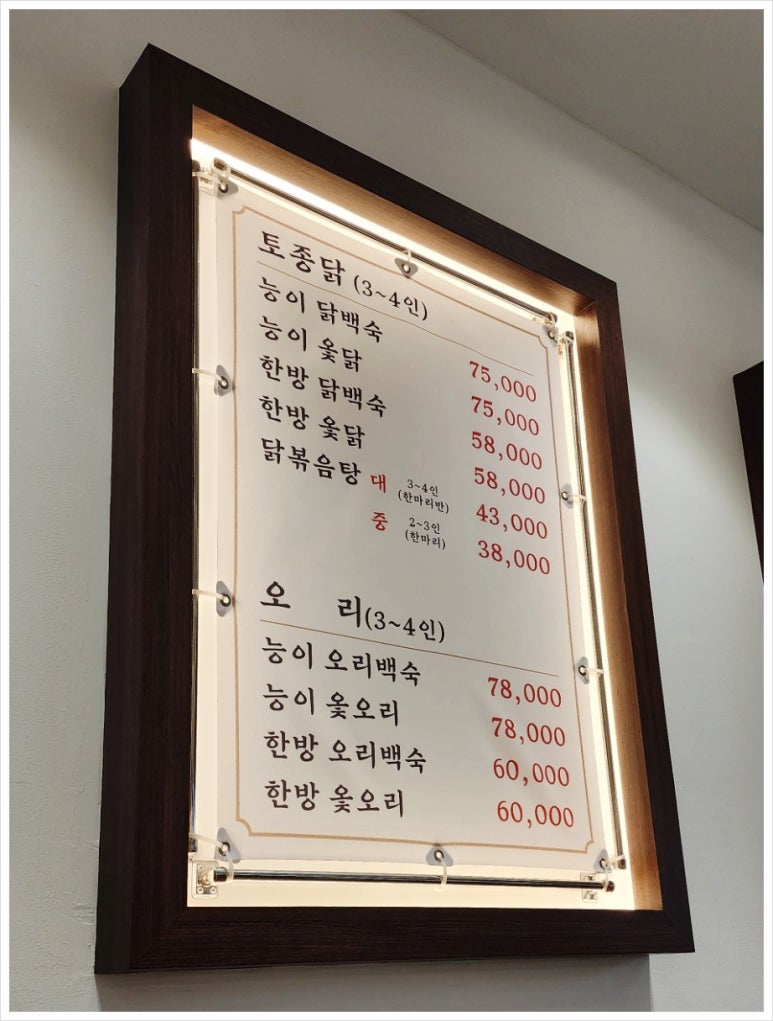 토종닭 (3~4인)
능이 닭백숙 75,000
능이 옻닭 75,000
한방 닭백숙 58,000
한방 옻닭 58,000
닭볶음탕 대 3~4인 (한마리반) 43,000
중 2~3인 (한마리) 38,000
오 리(3~4인)
능이 오리백숙 78,000
능이 옻오리 78,000
한방 오리백숙 60,000
한방 옻오리 60,000